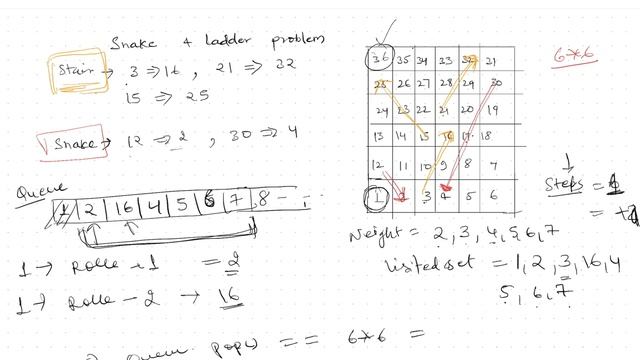 Snake + ladder problem
Stair → 3 ⇒ 16 , 21 ⇒ 32
15 ⇒ 25
Snake → 12 ⇒ 2 , 30 ⇒ 4
Queue
1 | 2 | 16 | 4 | 5 | 6 | 7 | 8 - -
1 → Rolle - 1 = 2
1 → Rolle - 2 → 16
Queue pop() == 6*6 =
36 35 34 33 32 31
25 26 27 28 29 30
24 23 22 21 20 19
13 14 15 16 17 18
12 11 10 9 8 7
1 2 3 4 5 6
6*6
Steps =
= +1
Neight = 2, 3, 4, 5, 6, 7
listed set = 1, 2, 3, 16, 4
5, 6, 7